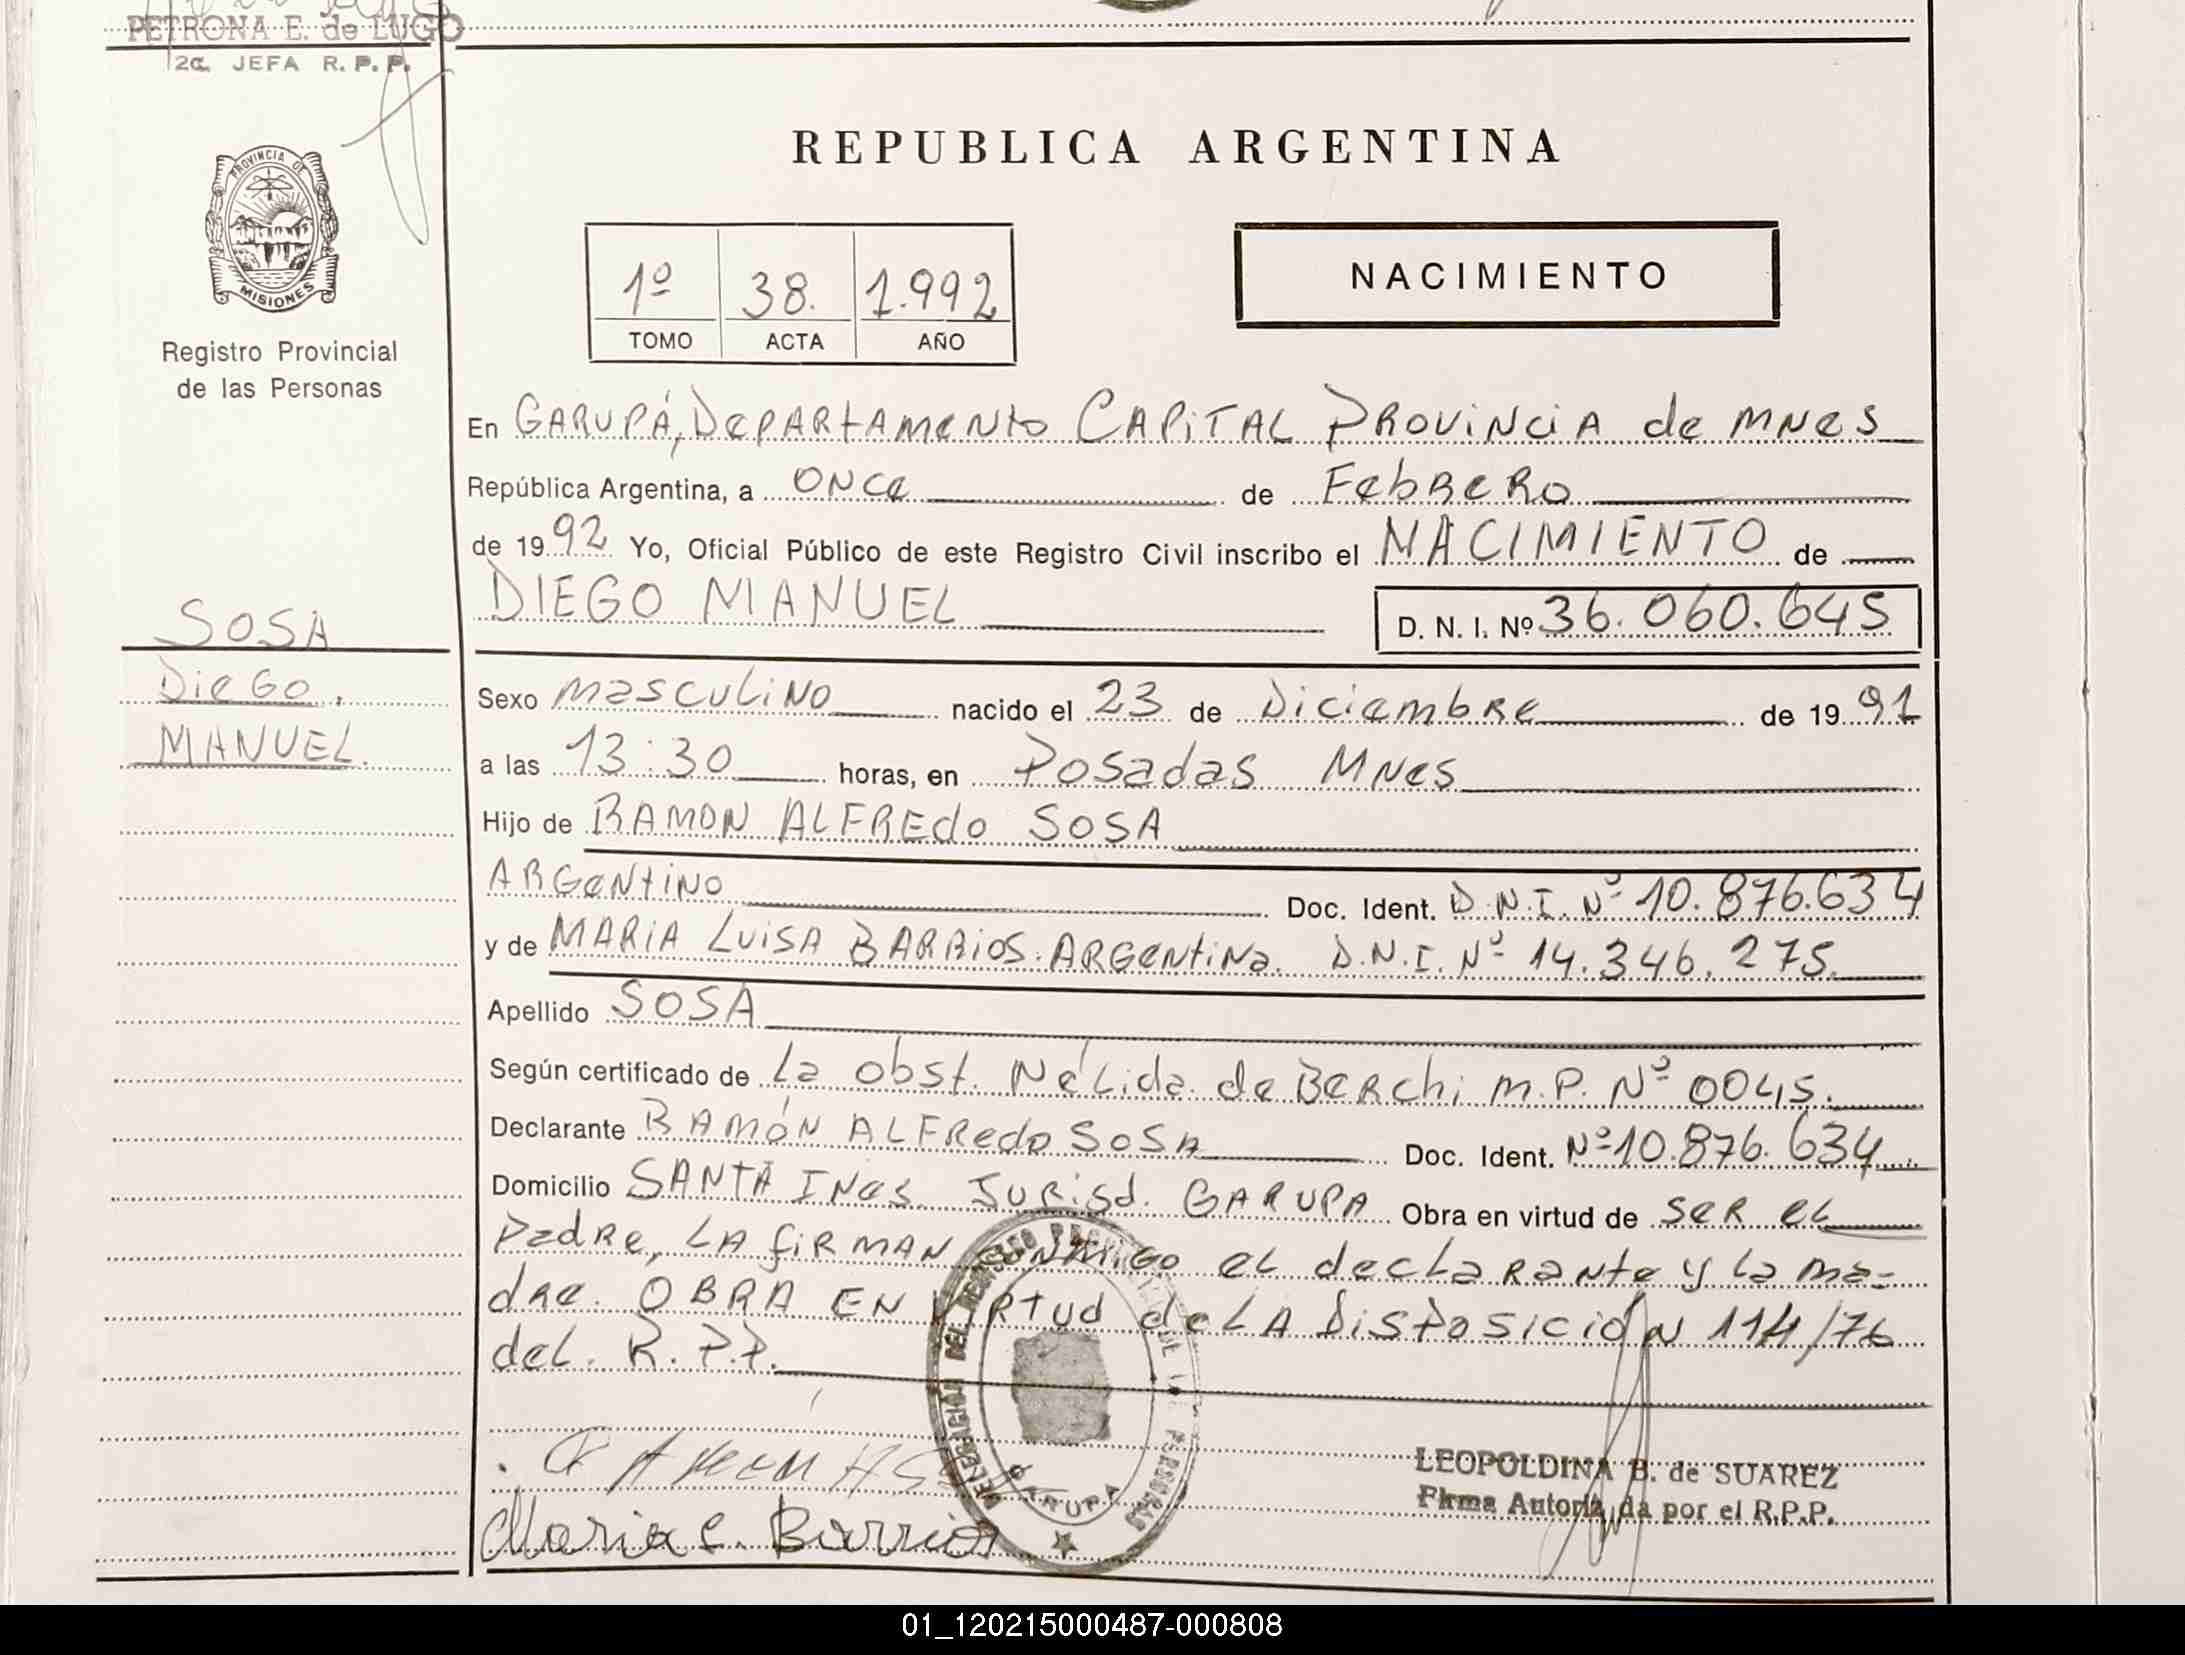 PETRONA E. de LUGO
2a. JEFA R.P.P.
PROVINCIA DE
MISIONES
Registro Provincial
de las Personas
SOSA
Diego.
MANUEL.
REPUBLICA ARGENTINA
1º 38. 1.992
TOMO ACTA AÑO
NACIMIENTO
En GARUPÁ, Departamento CAPITAL PROVINCIA de MNes
República Argentina, a once de Febrero
de 1992 Yo, Oficial Público de este Registro Civil inscribo el NACIMIENTO de
DIEGO MANUEL D. N. I. Nº 36.060.645
Sexo masculino nacido el 23 de Diciembre de 1991
a las 13:30 horas, en Posadas MNes
Hijo de RAMON ALFREdo SOSA
ARGentino Doc. Ident. D.N.I. Nº 10.876.634
y de MARIA LUISA BARRIOS. ARGentina. D.N.I. Nº 14.346.275.
Apellido SOSA
Según certificado de La obst. Nélida de Berchi M.P. Nº 0045.
Declarante RAMÓN ALFRedo SOSA Doc. Ident. Nº 10.876.634
Domicilio SANTA INes Jurisd. GARUPA Obra en virtud de ser el
Padre, LA firman conmigo el declarante y la ma-
dre. OBRA EN virtud de LA Disposición 114/76
del R.P.P.
DELEGACION DEL REGISTRO PROVINCIAL DE LAS PERSONAS
GARUPA
Maria L. Barrios
LEOPOLDINA B. de SUAREZ
Firma Autorizada por el R.P.P.
01_120215000487-000808